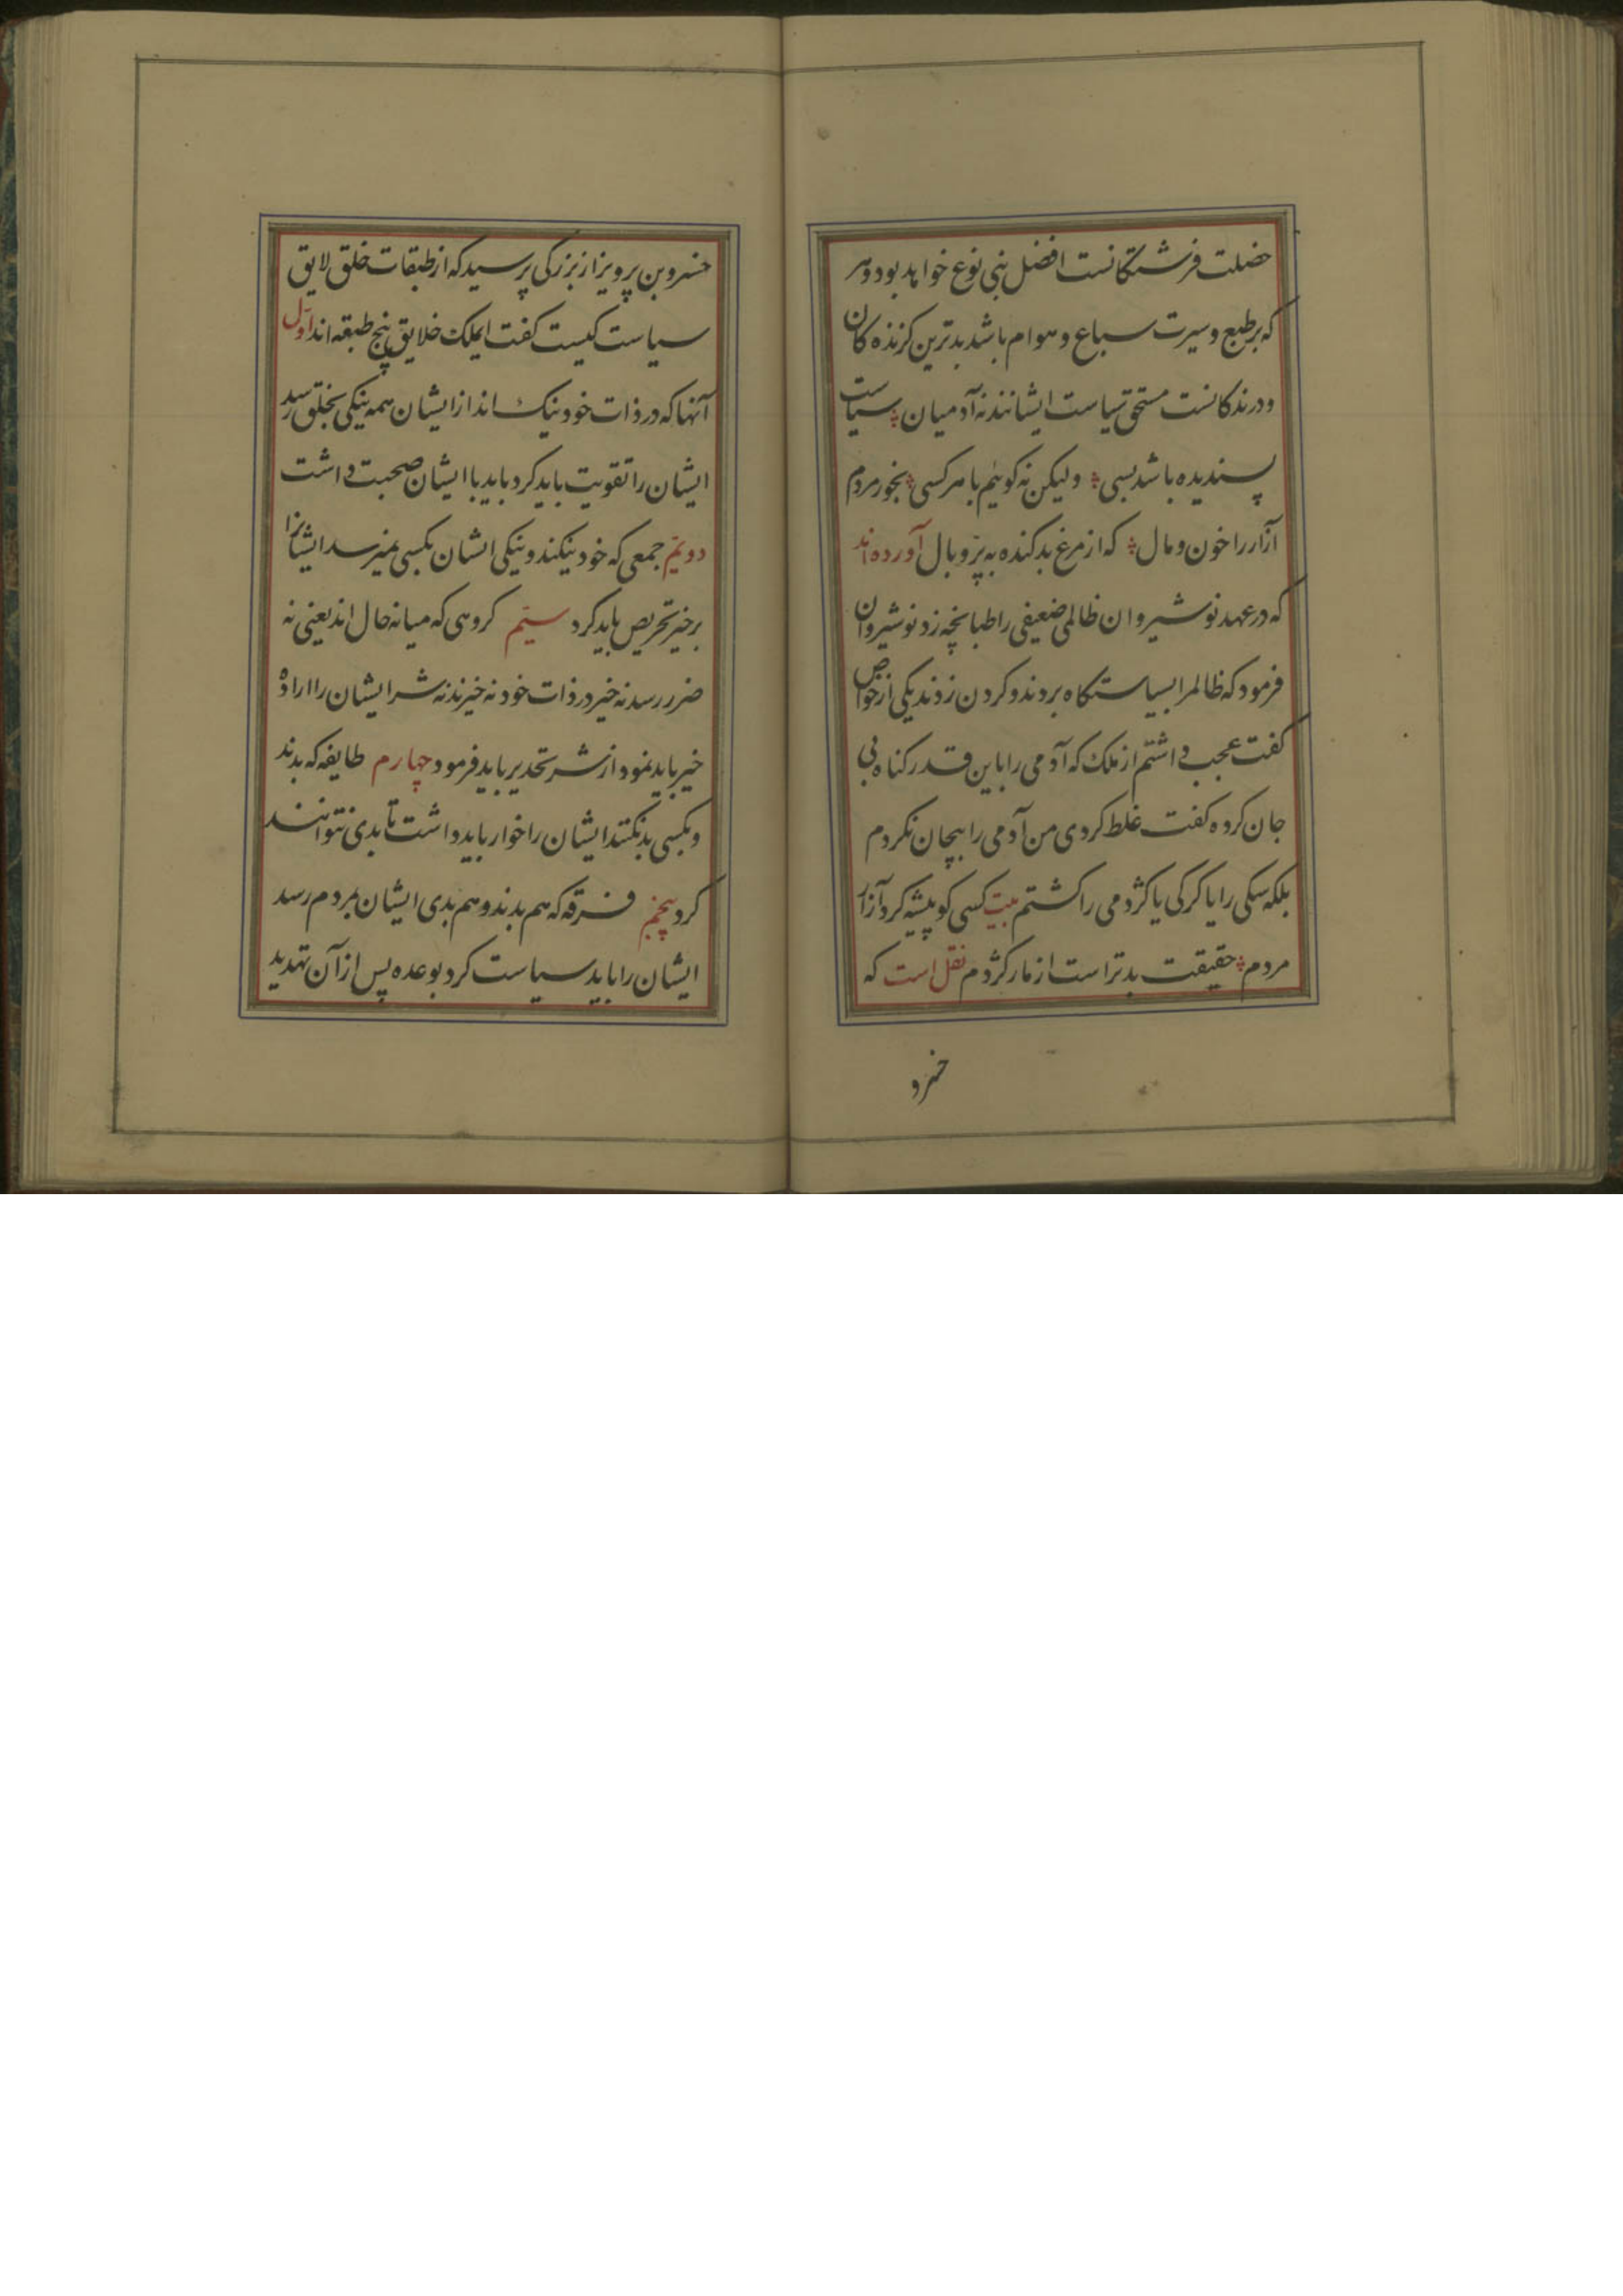 خصلت فرشتگانست افضل بنی نوع خواهد بود و هر
که بر طبع و سیرت سباع و هوام باشد بدترین کزنده کان
و درندکانست مستحق سیاست ایشانند نه آدمیان سیاست
پسندیده باشد بسی ولیکن نه کویم با هر کسی بخور مردم
آزار را خون و مال که از مرغ بد کنده به پر و بال آورده اند
که در عهد نوشیروان ظالمی ضعیفی را طبانچه زد نوشیروان
فرمود که ظالمرا بسیاستکاه بردند و کردن زدند یکی از خواص
کفت عجب داشتم از ملک که آدمی را باین قدر کناه بی
جان کرده کفت غلط کردی من آدمی را بیجان نکردم
بلکه سکی را یا کرکی یا کژدمی را کشتم بیت کسی کو پیشه کرد آزار
مردم حقیقت بدتر است از مار کژدم نقل است که
خسرو
خسرو بن پرویز از بزرکی پرسید که از طبقات خلق لایق
سیاست کیست کفت ایملک خلایق پنج طبقه اند اول
آنها که در ذات خود نیک اند از ایشان همه نیکی بخلق رسد
ایشان را تقویت باید کرد باید با ایشان صحبت داشت
دویم جمعی که خود نیکند و نیکی ایشان بکسی نمیرسد ایشانرا
بر خیر تحریص باید کرد سیم کروهی که میانه حال اند یعنی نه
ضرر رسد نه خیر در ذات خود نه خیرند نه شر ایشان را اراده
خیر باید نمود از شر تحدیر باید فرمود چهارم طایفه که بدند
و بکسی بد نکنند ایشان را خوار باید داشت تا بدی نتوانند
کرد پنجم فرقه که هم بدند و هم بدی ایشان بمردم رسد
ایشان را باید سیاست کرد بوعده پس از آن تهدید